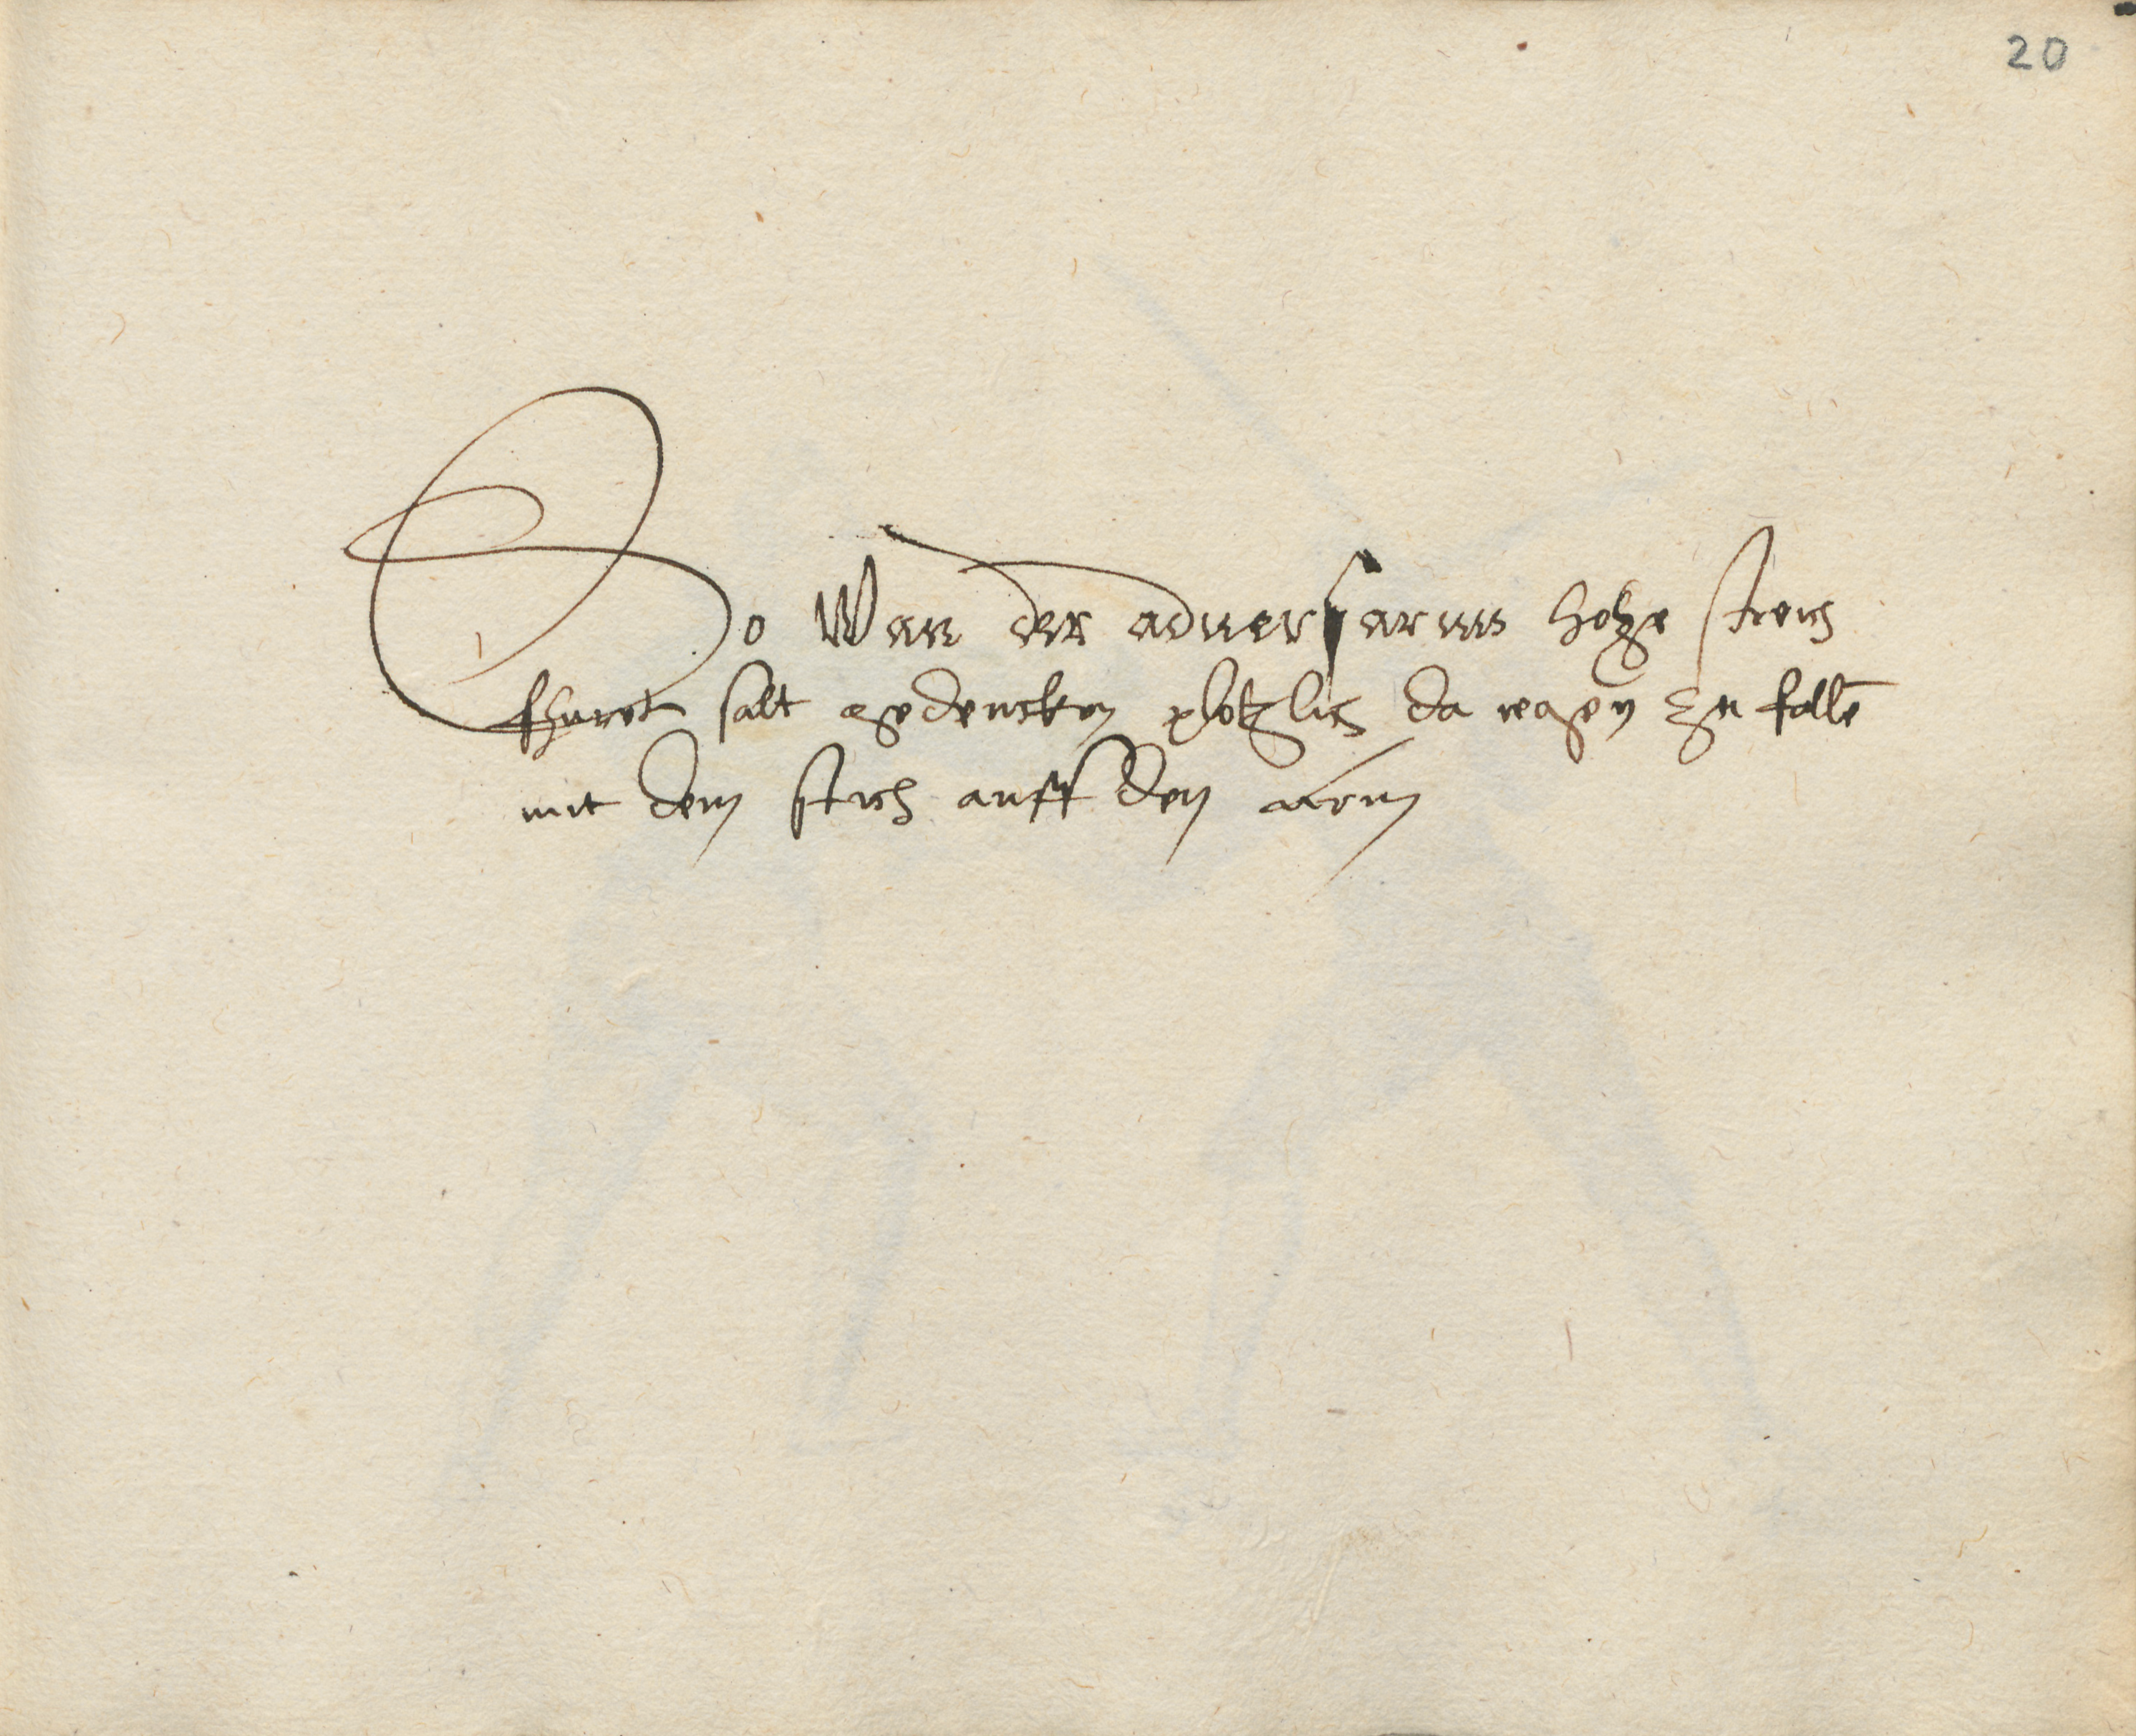 20
So Wan der aduersarius hohe streich
fhuret salt gedencken plotzlich da regen zu fallē
mit dem stich auff den arm